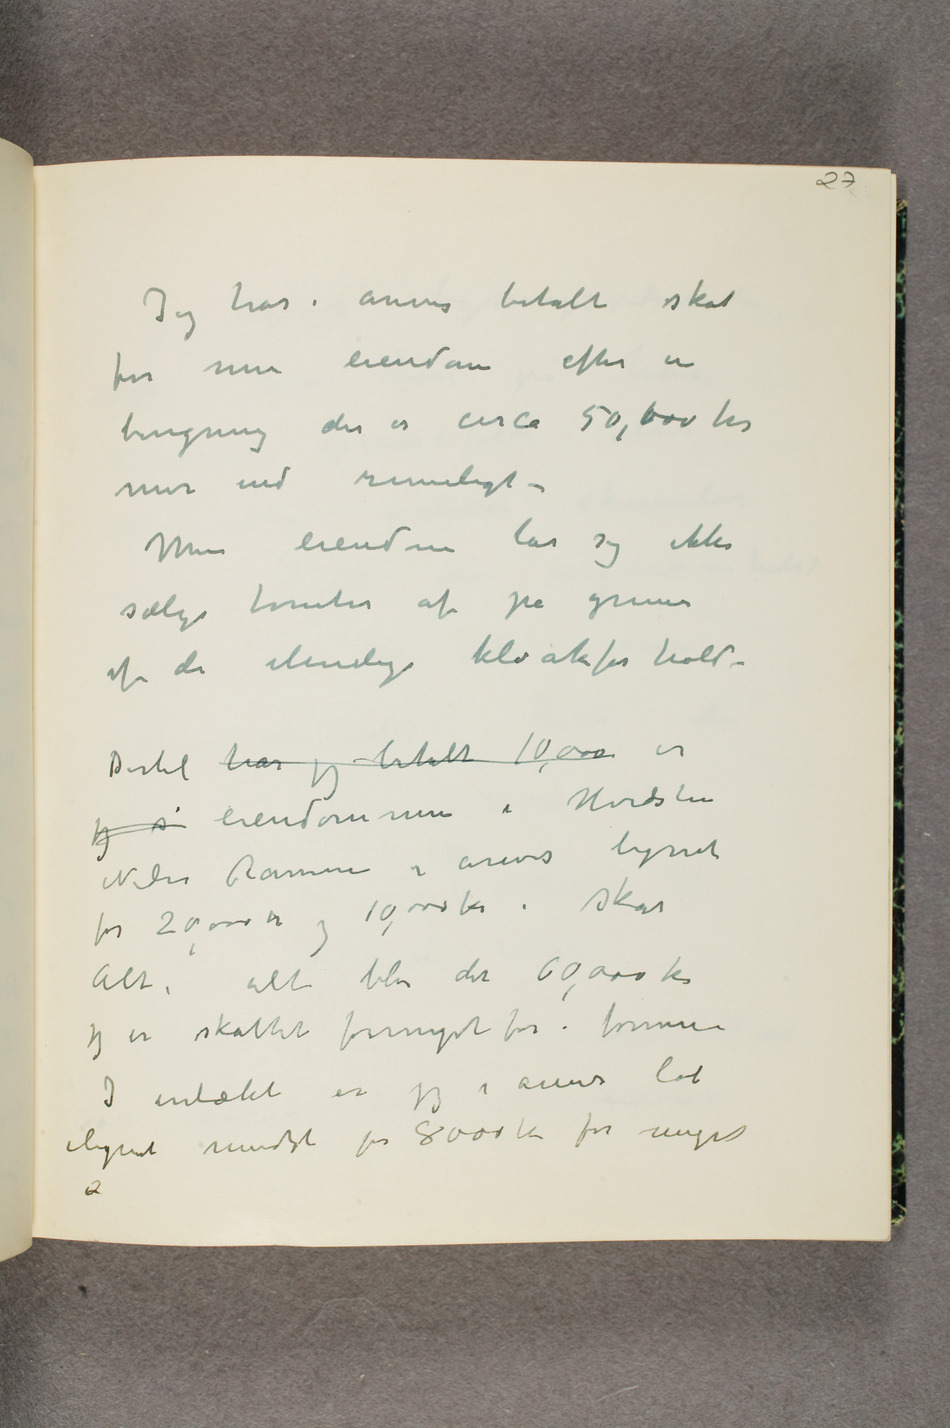 27
Jeg har i årevis betalt skat
for min eiendom efter en
bergning der er circa 50,000 kr
mer end rimeligt –
Min eiendom lar sig ikke
sælge tomter af på grund
af de elendige kloakforhold –
Dertil har jeg betalt 10,000 er
jeg i eiendommen i Hvidsten
Nedre Ramme i årevis lignet
for 20,000 kr og 10,000 kr i Skat
Alt i alt blir det 60,000 kr
jeg er skattet formeget for i formue
I intækt er jeg i årevis lat
ilignet mindst for 8000 kr for meget